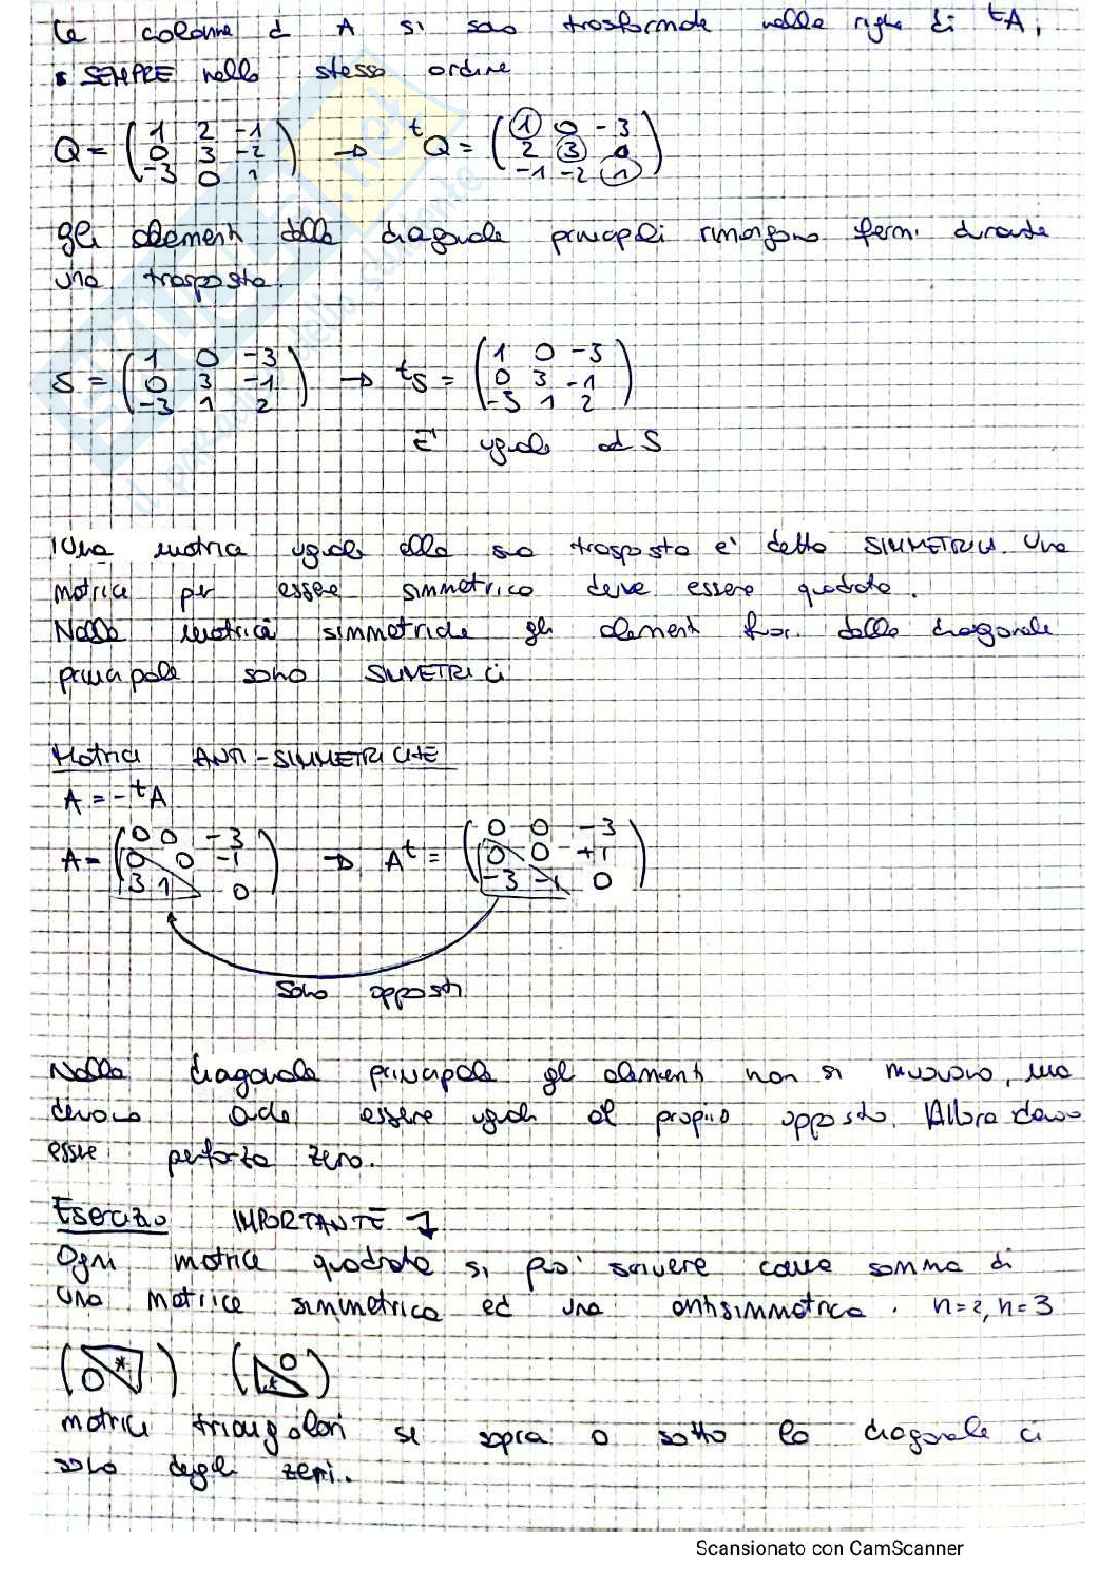 Le colonne di A si sono trasformate nelle righe di ᵗA,
SEMPRE nello stesso ordine
Q = ( 1 2 -1 / 0 3 -2 / -3 0 1 ) → ᵗQ = ( 1 0 -3 / 2 3 0 / -1 -2 1 )
gli elementi della diagonale principali rimangono fermi durante
una trasposta.
S = ( 1 0 -3 / 0 3 -1 / -3 1 2 ) → ᵗS = ( 1 0 -3 / 0 3 -1 / -3 1 2 )
E' uguale ad S
Una matrice uguale alla sua trasposta e' detta SIMMETRICA. Una
matrice per essere simmetrica deve essere quadrata.
Nelle matrici simmetriche gli elementi fuori dalla diagonale
principale sono SIMETRICI
Matrici ANTI-SIMMETRICHE
A = -ᵗA
A = ( 0 0 -3 / 0 0 -1 / 3 1 0 ) → Aᵗ = ( 0 0 -3 / 0 0 +1 / -3 -1 0 )
Sono opposti
Nella diagonale principale gli elementi non si muovono, ma
devono essere uguali al proprio opposto. Allora devono
essere perforza zero.
Esercizio IMPORTANTE
Ogni matrice quadrata si puo' scrivere come somma di
una matrice simmetrica ed una antisimmetrica. n=2, n=3
( 0 * ) ( * 0 )
matrici triangolari se sopra o sotto la diagonale ci
sono degli zeri.
Scansionato con CamScanner